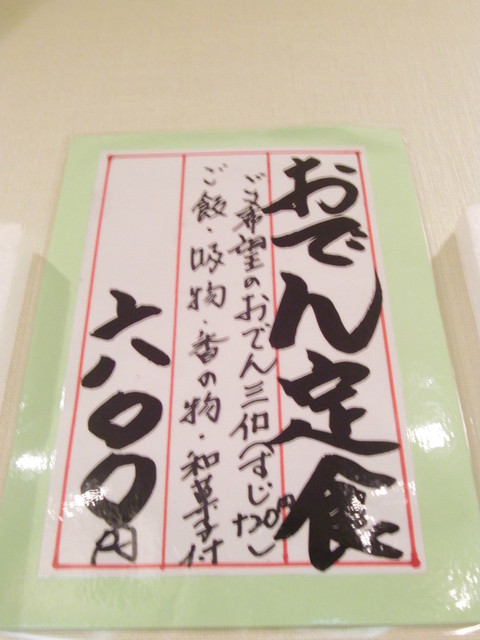 おでん定食
ご希望のおでん三個(すじ+20円)
ご飯・吸物・香の物・和菓子付
六八〇〇円